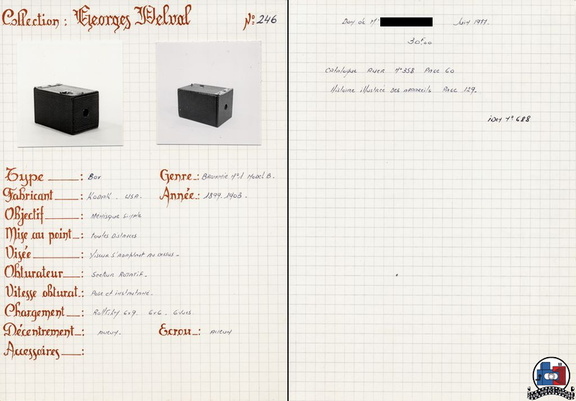 Collection : Georges Delval N° 246
Type : Box
Genre : Brownie N°1 Model B.
Fabricant : Kodak . USA.
Année : 1899. 1903.
Objectif : Menisque simple
Mise au point : toutes distances
Visée :
Obturateur : Secteur Rotatif.
Vitesse obturat. : Pose et instantané.
Chargement : Rollfilm 6x9. 6x6. 6 vues
Décentrement : aucun.
Ecrou : aucun
Accessoires :
Don de Mr Juin 1977.
Catalogue Auer N°358 Page 60
Histoire illustrée des appareils Page 129.
idem N° 688